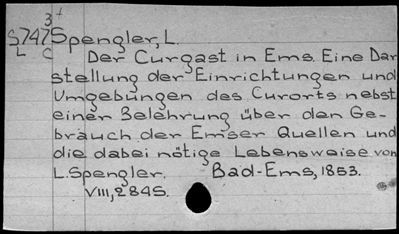 3+
S747 Spengler, L.
L C Der Curgast in Ems. Eine Dar
stellung der Einrichtungen und
Umgebungen des Curorts nebst
einer Belehrung über den Ge-
brauch der Emser Quellen und
die dabei nötige Lebensweise von
L. Spengler. Bad-Ems, 1853.
VIII, 284S.